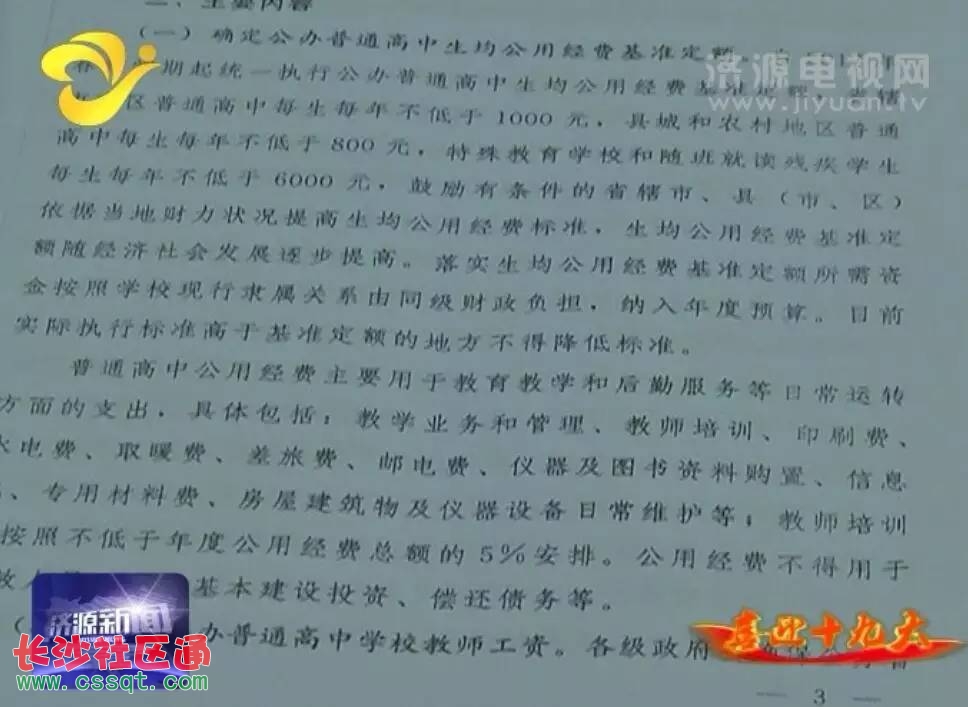 二、主要内容
（一）确定公办普通高中生均公用经费基准定额。
期起统一执行公办普通高中生均公用经费基准定额，
区普通高中每生每年不低于1000元，县城和农村地区普通
高中每生每年不低于800元，特殊教育学校和随班就读残疾学生
每生每年不低于6000元，鼓励有条件的省辖市、县（市、区）
依据当地财力状况提高生均公用经费标准，生均公用经费基准定
额随经济社会发展逐步提高。落实生均公用经费基准定额所需资
金按照学校现行隶属关系由同级财政负担，纳入年度预算。目前
实际执行标准高于基准定额的地方不得降低标准。
普通高中公用经费主要用于教育教学和后勤服务等日常运转
方面的支出，具体包括：教学业务和管理、教师培训、印刷费、
水电费、取暖费、差旅费、邮电费、仪器及图书资料购置、信息
、专用材料费、房屋建筑物及仪器设备日常维护等；教师培训
按照不低于年度公用经费总额的5%安排。公用经费不得用于
基本建设投资、偿还债务等。
办普通高中学校教师工资。各级政府
3
济源电视网
www.jiyuan.tv
济源新闻
长沙社区通
www.cssqt.com
喜迎十九大